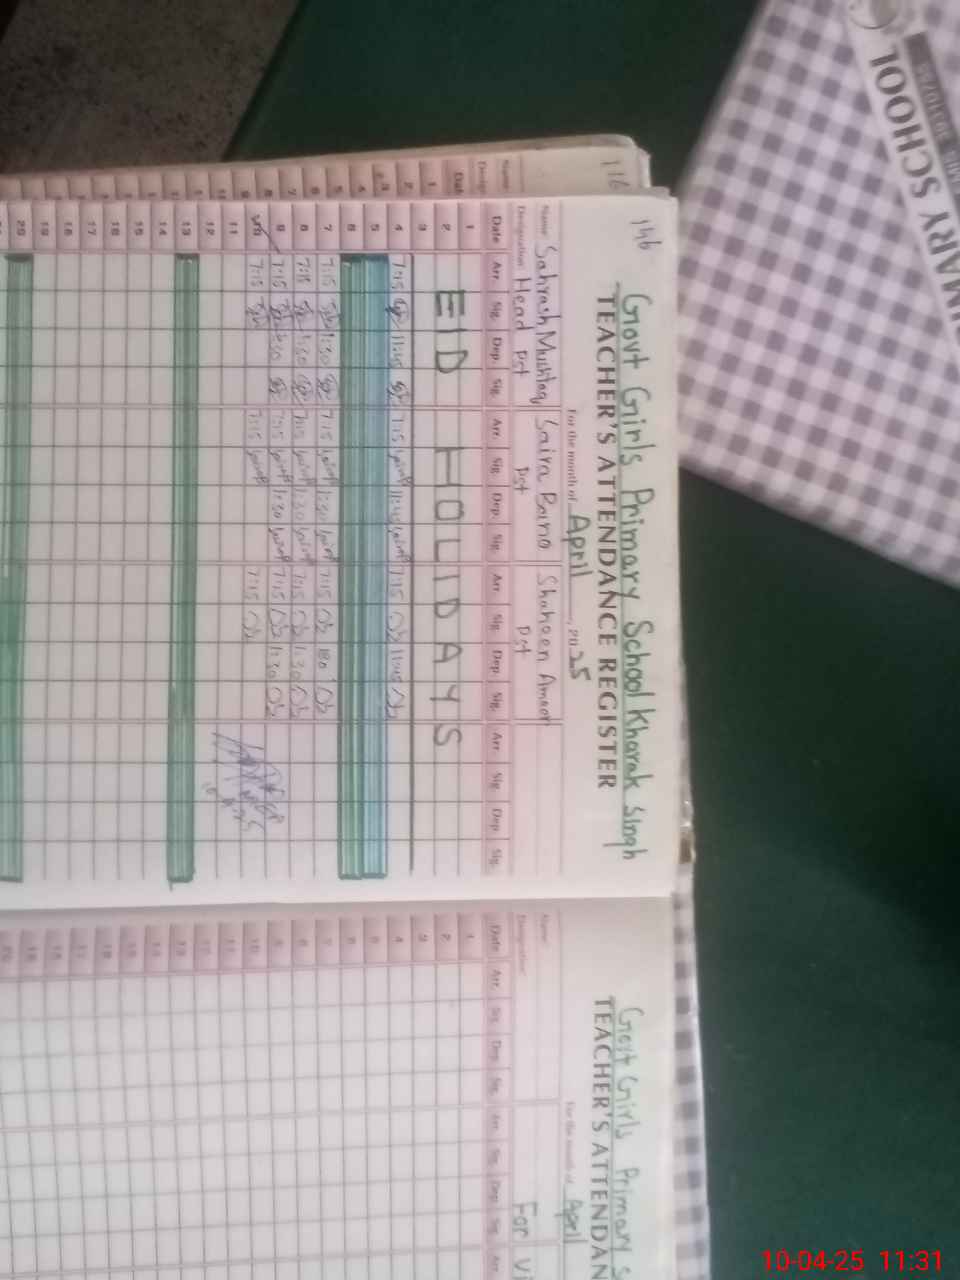 146
Govt Girls Primary School Kharak Singh
TEACHER'S ATTENDANCE REGISTER
For the month of April, 2025
Name Sahrash Mushtaq Saira Bano Shaheen Ameer
Designation Head Pst Pst Pst
Date Arr. Sig. Dep. Sig. Arr. Sig. Dep. Sig. Arr. Sig. Dep. Sig. Arr. Sig. Dep. Sig.
1
2 EID HOLIDAYS
3
4 7:15 11:45 7:15 11:45 7:15 11:45
5
6
7 7:15 1:30 7:15 1:30 7:15 180
8 7:15 1:30 7:15 1:30 7:15 1:30
9 7:15 1:30 7:15 1:30 7:15 1:30
10 7:15 7:15 7:15
11
12
13
14
15
16
17
18
19
20
116
Name
Design
Date
1
2
3
4
5
6
7
8
Govt Girls Primary S
TEACHER'S ATTENDAN
For the month of April
Name
Designation For Vi
Date Arr. Sig. Dep. Sig. Arr. Sig. Dep. Sig. Arr.
1
2
3
4
5
6
7
8
9
10
11
12
13
14
15
16
17
18
19
20
MARY SCHOOL
10-04-25 11:31